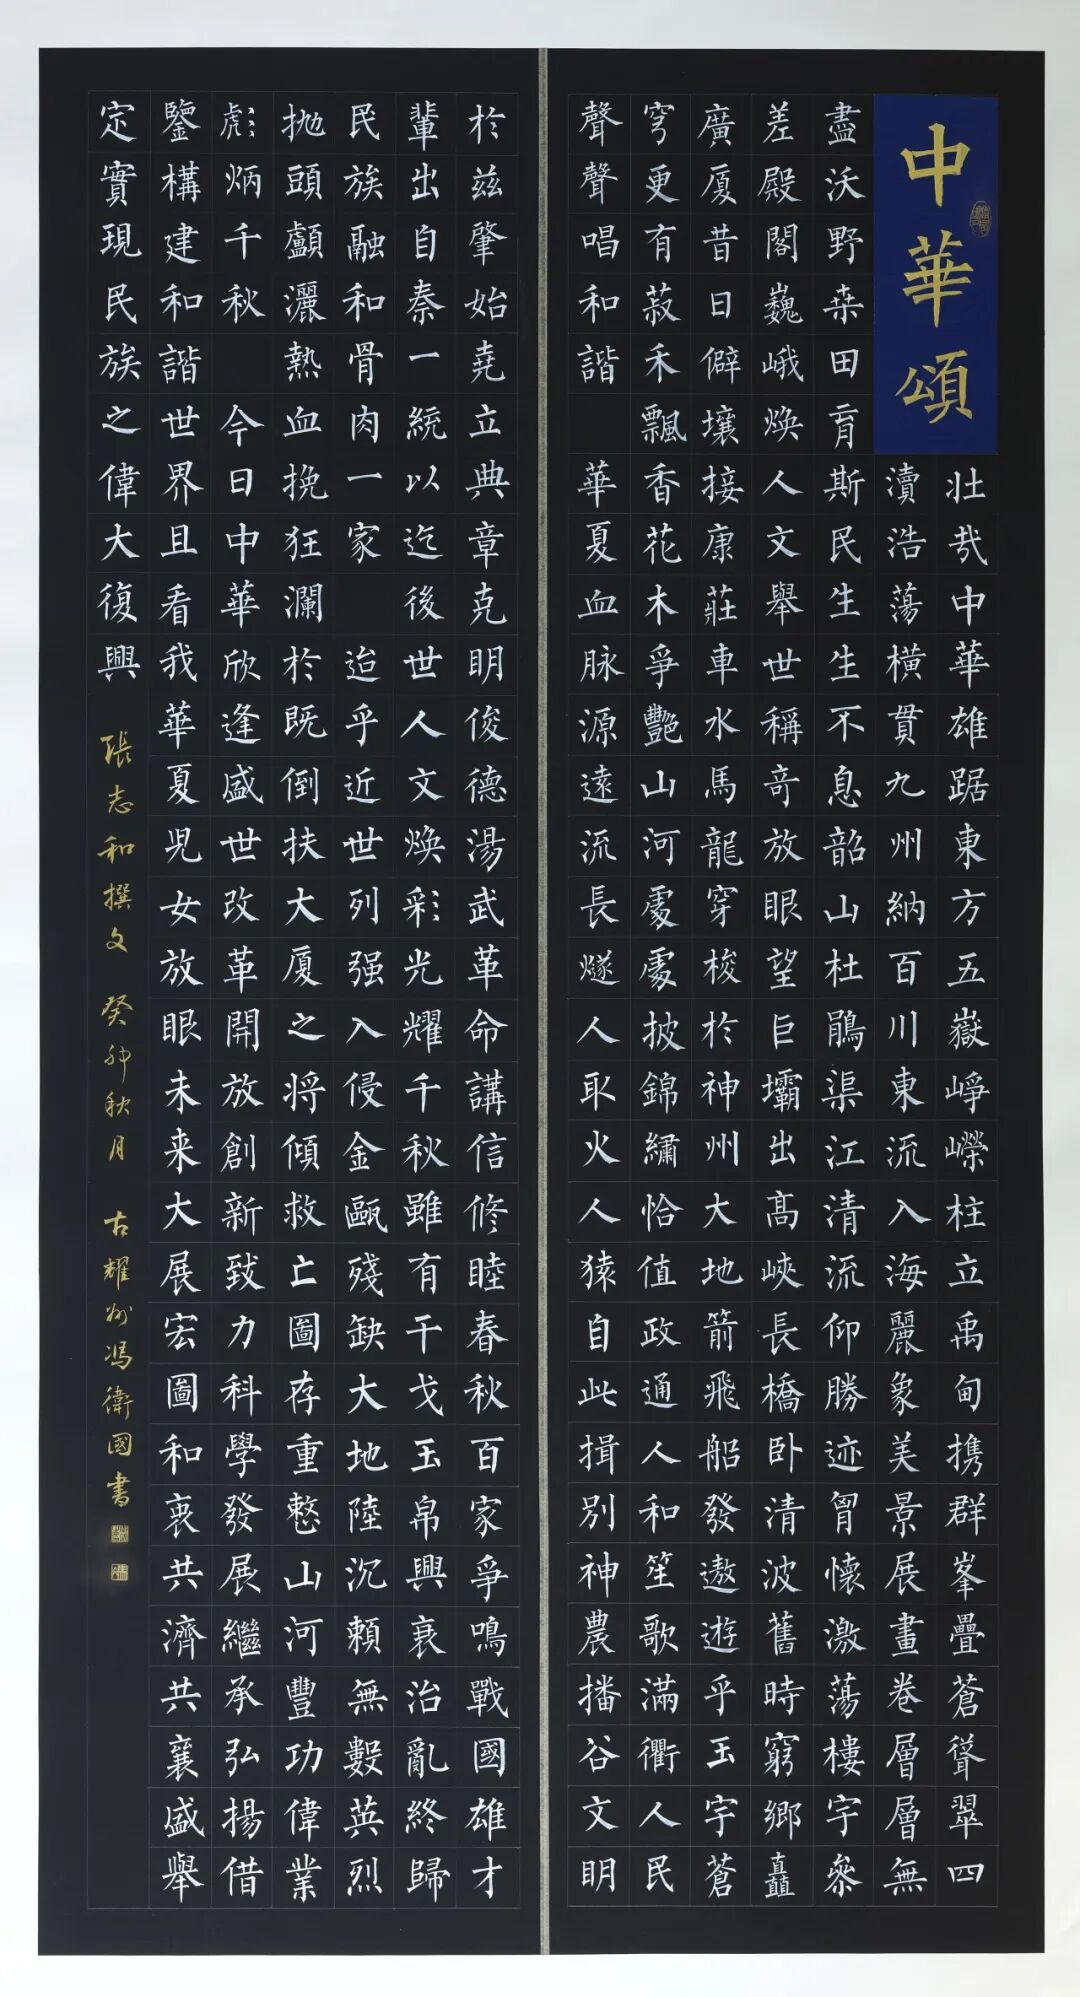 中華頌
壯哉中華雄踞東方五嶽崢嶸柱立禹甸携群峯疊蒼聳翠四
瀆浩蕩橫貫九州納百川東流入海麗象美景展畫卷層層無
盡沃野桒田育斯民生生不息韶山杜鵑渠江清流仰勝迹胷懷激蕩樓宇參
差殿閣巍峨焕人文舉世稱奇放眼望巨壩出高峽長橋卧清波舊時窮鄉矗
廣厦昔日僻壤接康莊車水馬龍穿梭於神州大地箭飛船發遨遊乎玉宇蒼
穹更有菽禾飄香花木爭艷山河處處披錦繡恰值政通人和笙歌滿衢人民
聲聲唱和諧 華夏血脉源遠流長燧人取火人猿自此揖別神農播谷文明
於兹肇始堯立典章克明俊德湯武革命講信修睦春秋百家爭鳴戰國雄才
輩出自秦一統以迄後世人文焕彩光耀千秋雖有干戈玉帛興衰治亂終歸
民族融和骨肉一家 迨乎近世列强入侵金甌殘缺大地陸沉賴無數英烈
拋頭顱灑熱血挽狂瀾於既倒扶大厦之將傾救亡圖存重整山河豐功偉業
彪炳千秋 今日中華欣逢盛世改革開放創新致力科學發展繼承弘揚借
鑒構建和諧世界且看我華夏兒女放眼未来大展宏圖和衷共濟共襄盛舉
定實現民族之偉大復興 張志和撰文 癸卯秋月 古耀州馮衛國書